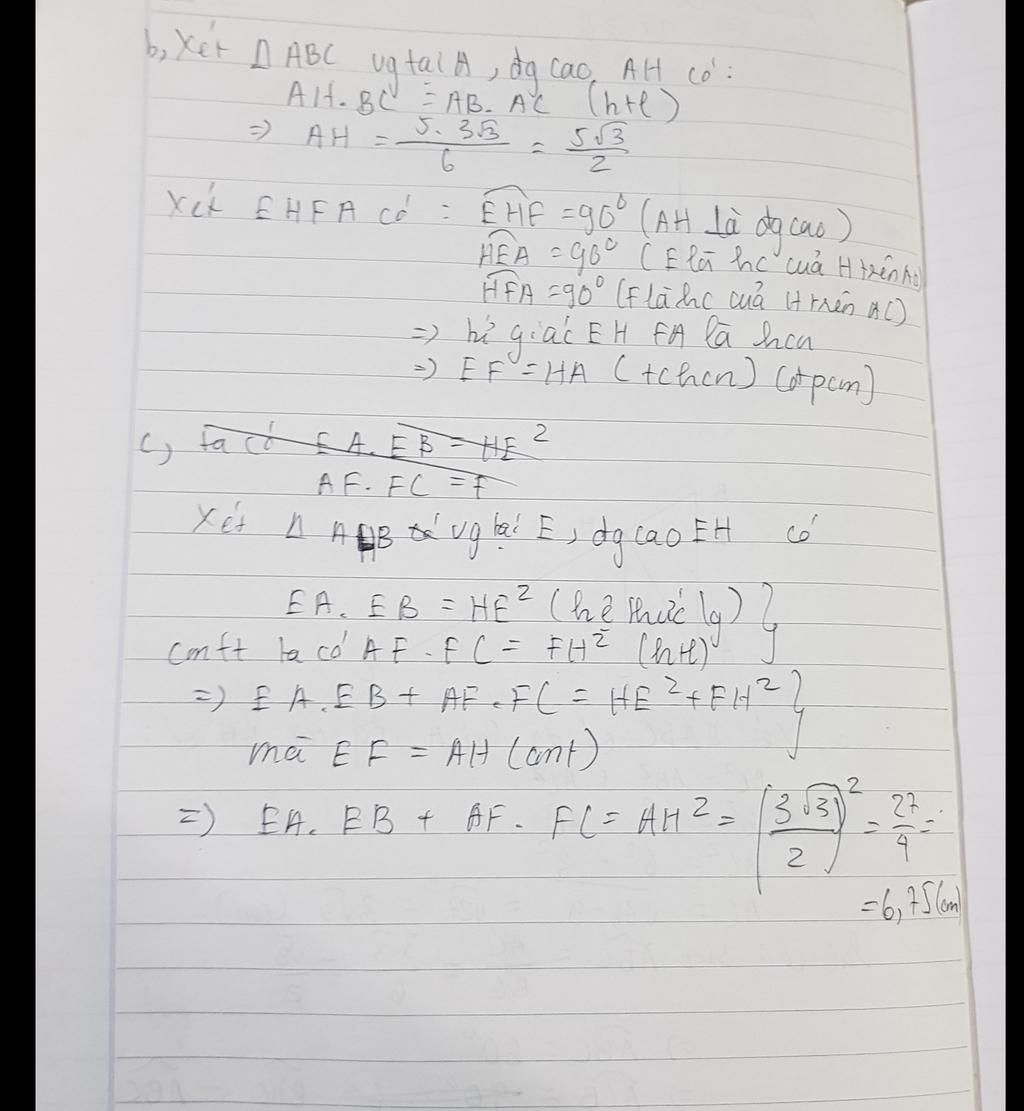 b, Xét Δ ABC vg tại A, đg cao AH có:
AH. BC = AB. AC (htl)
=> AH = 5. 3√3 / 6 = 5√3 / 2
Xét EHFA có: EHF = 90° (AH là đg cao)
HEA = 90° (E là hc cuả H trên AB)
HFA = 90° (F là hc cuả H trên AC)
=> tứ giác EH FA là hcn
=> EF = HA (tchcn) (đpcm)
c, ta có EA. EB = HE²
AF. FC = F
Xét Δ AHB vg tại E, đg cao EH có
EA. EB = HE² (hệ thức lg) }
cmtt ta có AF. FC = FH² (htl)
=> EA. EB + AF. FC = HE² + FH² }
mà EF = AH (cmt)
=> EA. EB + AF. FC = AH² = (3√3 / 2)² = 27/4 =
= 6,75 (cm)